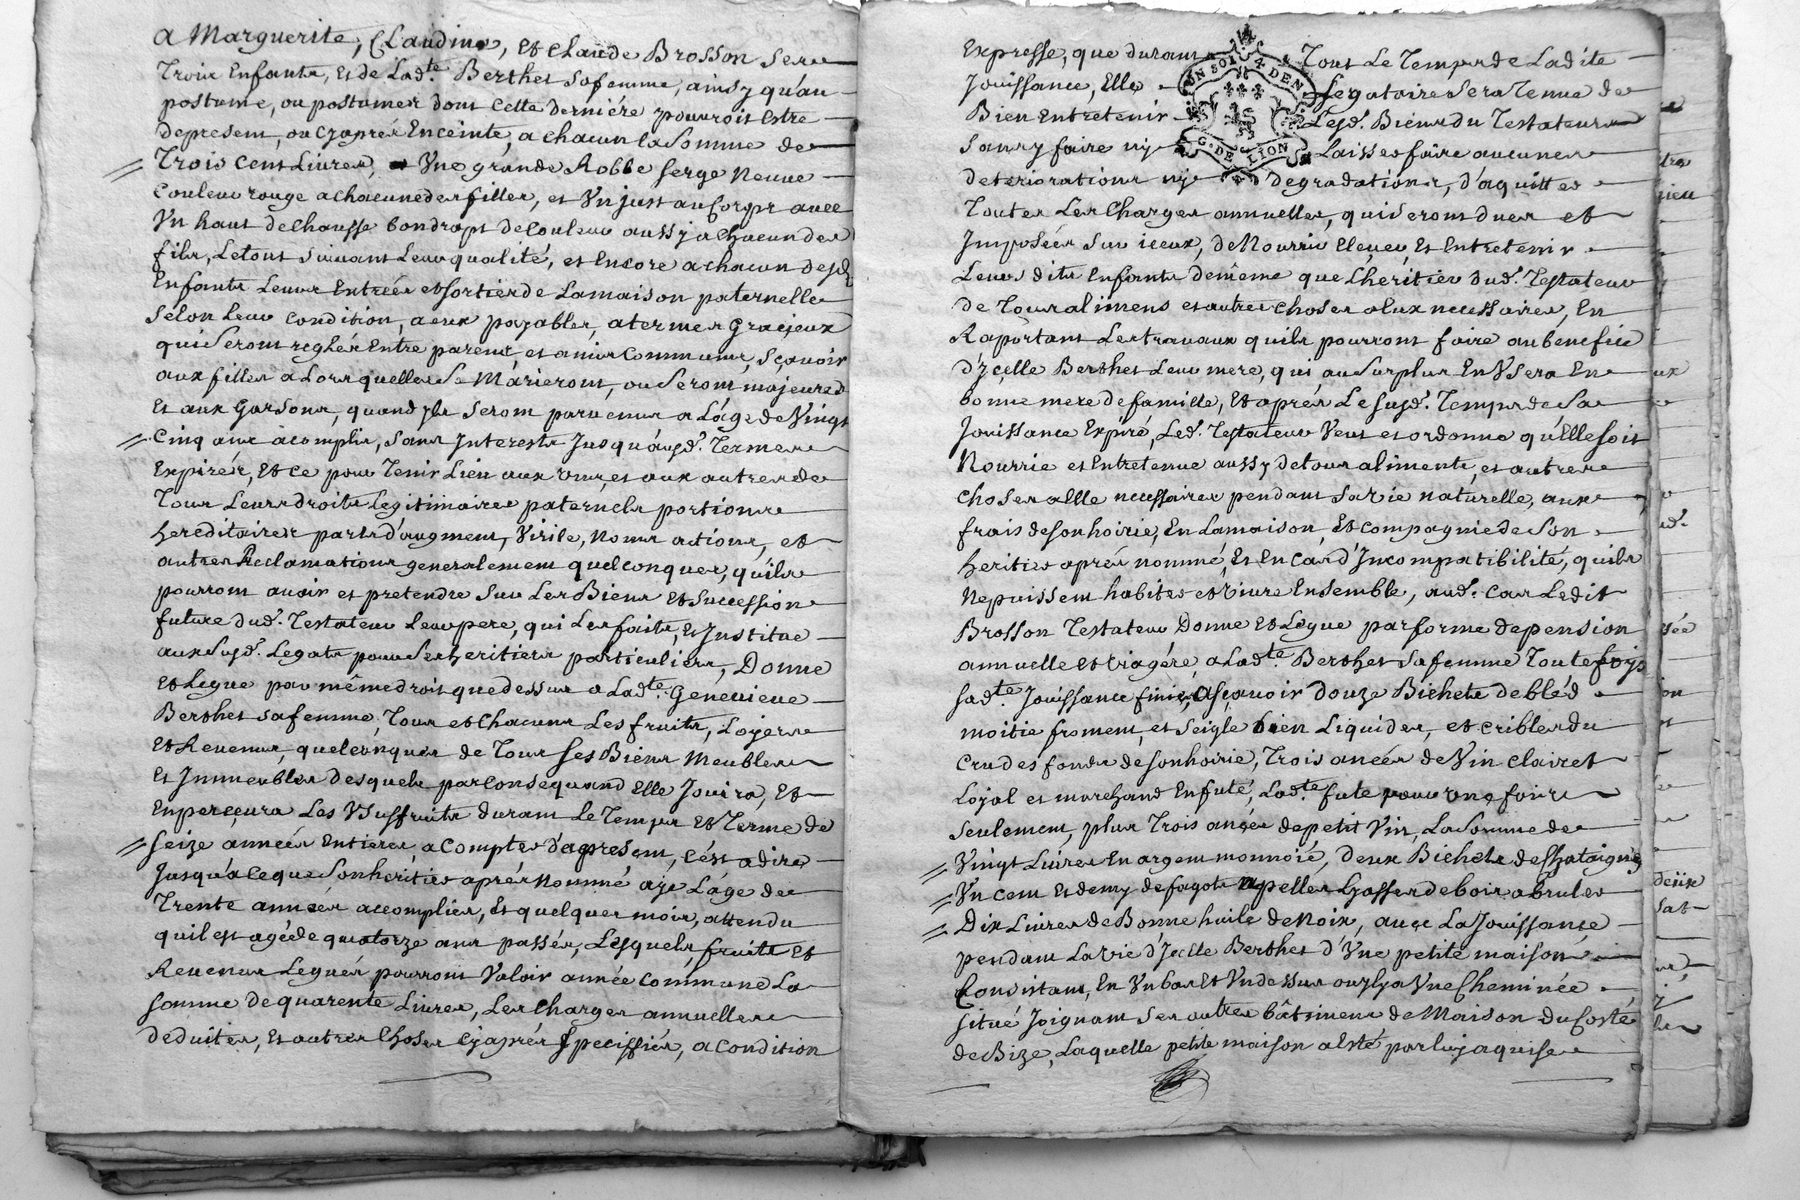 a Marguerite, Claudine, et claude Brosson ses
Trois Enfants, et de Lad.te Berthet sa femme, ainsy qu'au
postume, ou postumes dont Cette derniére pourroit Estre
depresent, ou cyaprés Enceinte, a chacun la somme de
Trois cent Livres, Une grande Robbe serge neuve
Couleur rouge a chacune des filles, et Un just au Corps avec
Un haut de chausse bon draps de Couleur aussy a chacun des
fils, Le tout suivant Leur qualité, et Encore a chacun desd.
Enfants Leurs Entrées et sorties de La maison paternelle
Selon Leur Condition, a eux payables, a termes gracieux
qui seront reglés Entre parents et amis Communs, sçavoir
aux filles a Lors quelles Se Marieront, ou seront majeures
Et aux garsons, quand yls seront parvenus a L'age de Vingt
Cinq ans acomplis, sans Interests Jusqu'ausd. Termes
Expirés, Et ce pour Tenir Lieu aux uns, et aux autres de
Tous Leurs droits Legitimaires paternels portions
hereditaires parts d'augment, Virile, noms actions, et
autres Reclamations generalement quelconques, qu'ils
pourront avoir et pretendre Sur Les Biens Et succession
future dud. Testateur Leur pere, qui Les faits, Et Institue
aux Susd. Legats pour Ses heritiers particuliers, Donne
Et Legue par même droit que dessus a Lad.te Genevieve
Berthet sa femme, Tous et chacuns Les fruits, Loyers
Et Revenus, quelconques de Tous ses Biens Meubles
Et Immeubles desquels par Consequand Elle Jouira, Et
En perçeura Les Usuffruits durant Le Temps Et Terme de
seize années Entieres a Compter d'apresent, c'est a dire
Jusqu'a ce que Son heritier aprés nommé aye L'age de
Trente années accomplies, Et quelques mois, attendu
quil est agé de quatorze ans passés, Lesquels fruits Et
Revenus Legués pourront Valoir année Commune La
somme de quarente Livres, Les charges annuelles
deduites, Et autres choses cyaprés specifiés, a condition
Expresse, que durant Tout Le Temps de Ladite
Jouissance, Elle Legataire sera Tenue de
Bien Entretenir Lesd. Biens du Testateur
Sans y faire ny Laisser faire aucunes
deteriorations ny degradations, d'aquitter
Toutes Les Charges annuelles, qui seront dues et
Imposées Sur iceux, de Nourrir Elever, Et Entretenir
Leurs dits Enfants de même que L'heritier dud. Testateur
de Tous aliments et autres choses a Eux necessaires, En
Raportant Les travaux quils pourront faire au benefice
d'yçelle Berthet Leur mere, qui au Surplus En Usera En
bonne mere de famille, Et aprés Le susd. Temps de Sa
Jouissance Expiré, Led. Testateur Veut et ordonne qu'Elle soit
Nourrie et Entretenue aussy de tous aliments, et autres
choses a Elle necessaires pendant sa vie naturelle, aux
frais de son hoirie, En La maison, Et compagnie de Son
heritier aprés nommé, Et En cas d'Incompatibilité, quils
Ne puissent habiter et vivre Ensemble, aud. cas Ledit
Brosson Testateur Donne Et Legue par forme de pension
annuelle et viagére, a Lad.te Berthet sa femme Toutefois
sad.te Jouissance finie, asçavoir douze Bichets de bléd
moitie froment, et Seigle bien Liquides, et cribles du
Cru des fonds de son hoirie, Trois anées de Vin clairet
Loyal et marchand Enfuté, Lad.te fute pour une fois
seulement, plus Trois anées de petit Vin, La Somme de
Vingt Livres En argent monnoié, deux Bichets de Chataignes
Un cent Et demy de fagots apelles Lyasses de bois a bruler
Dix Livres de Bonne huile de noix, avec La Jouissançe
pendant La vie d'Icelle Berthet d'Une petite maison
Consistant, En Un bas Et Un dessus ou yl ya Une Cheminée
situé Joignant Ses autres bâtiments de Maison du Costé
de Bize, Laquelle petite maison a Esté par luy aquise
ON SOL 4 DEN
G. DE LION
deux